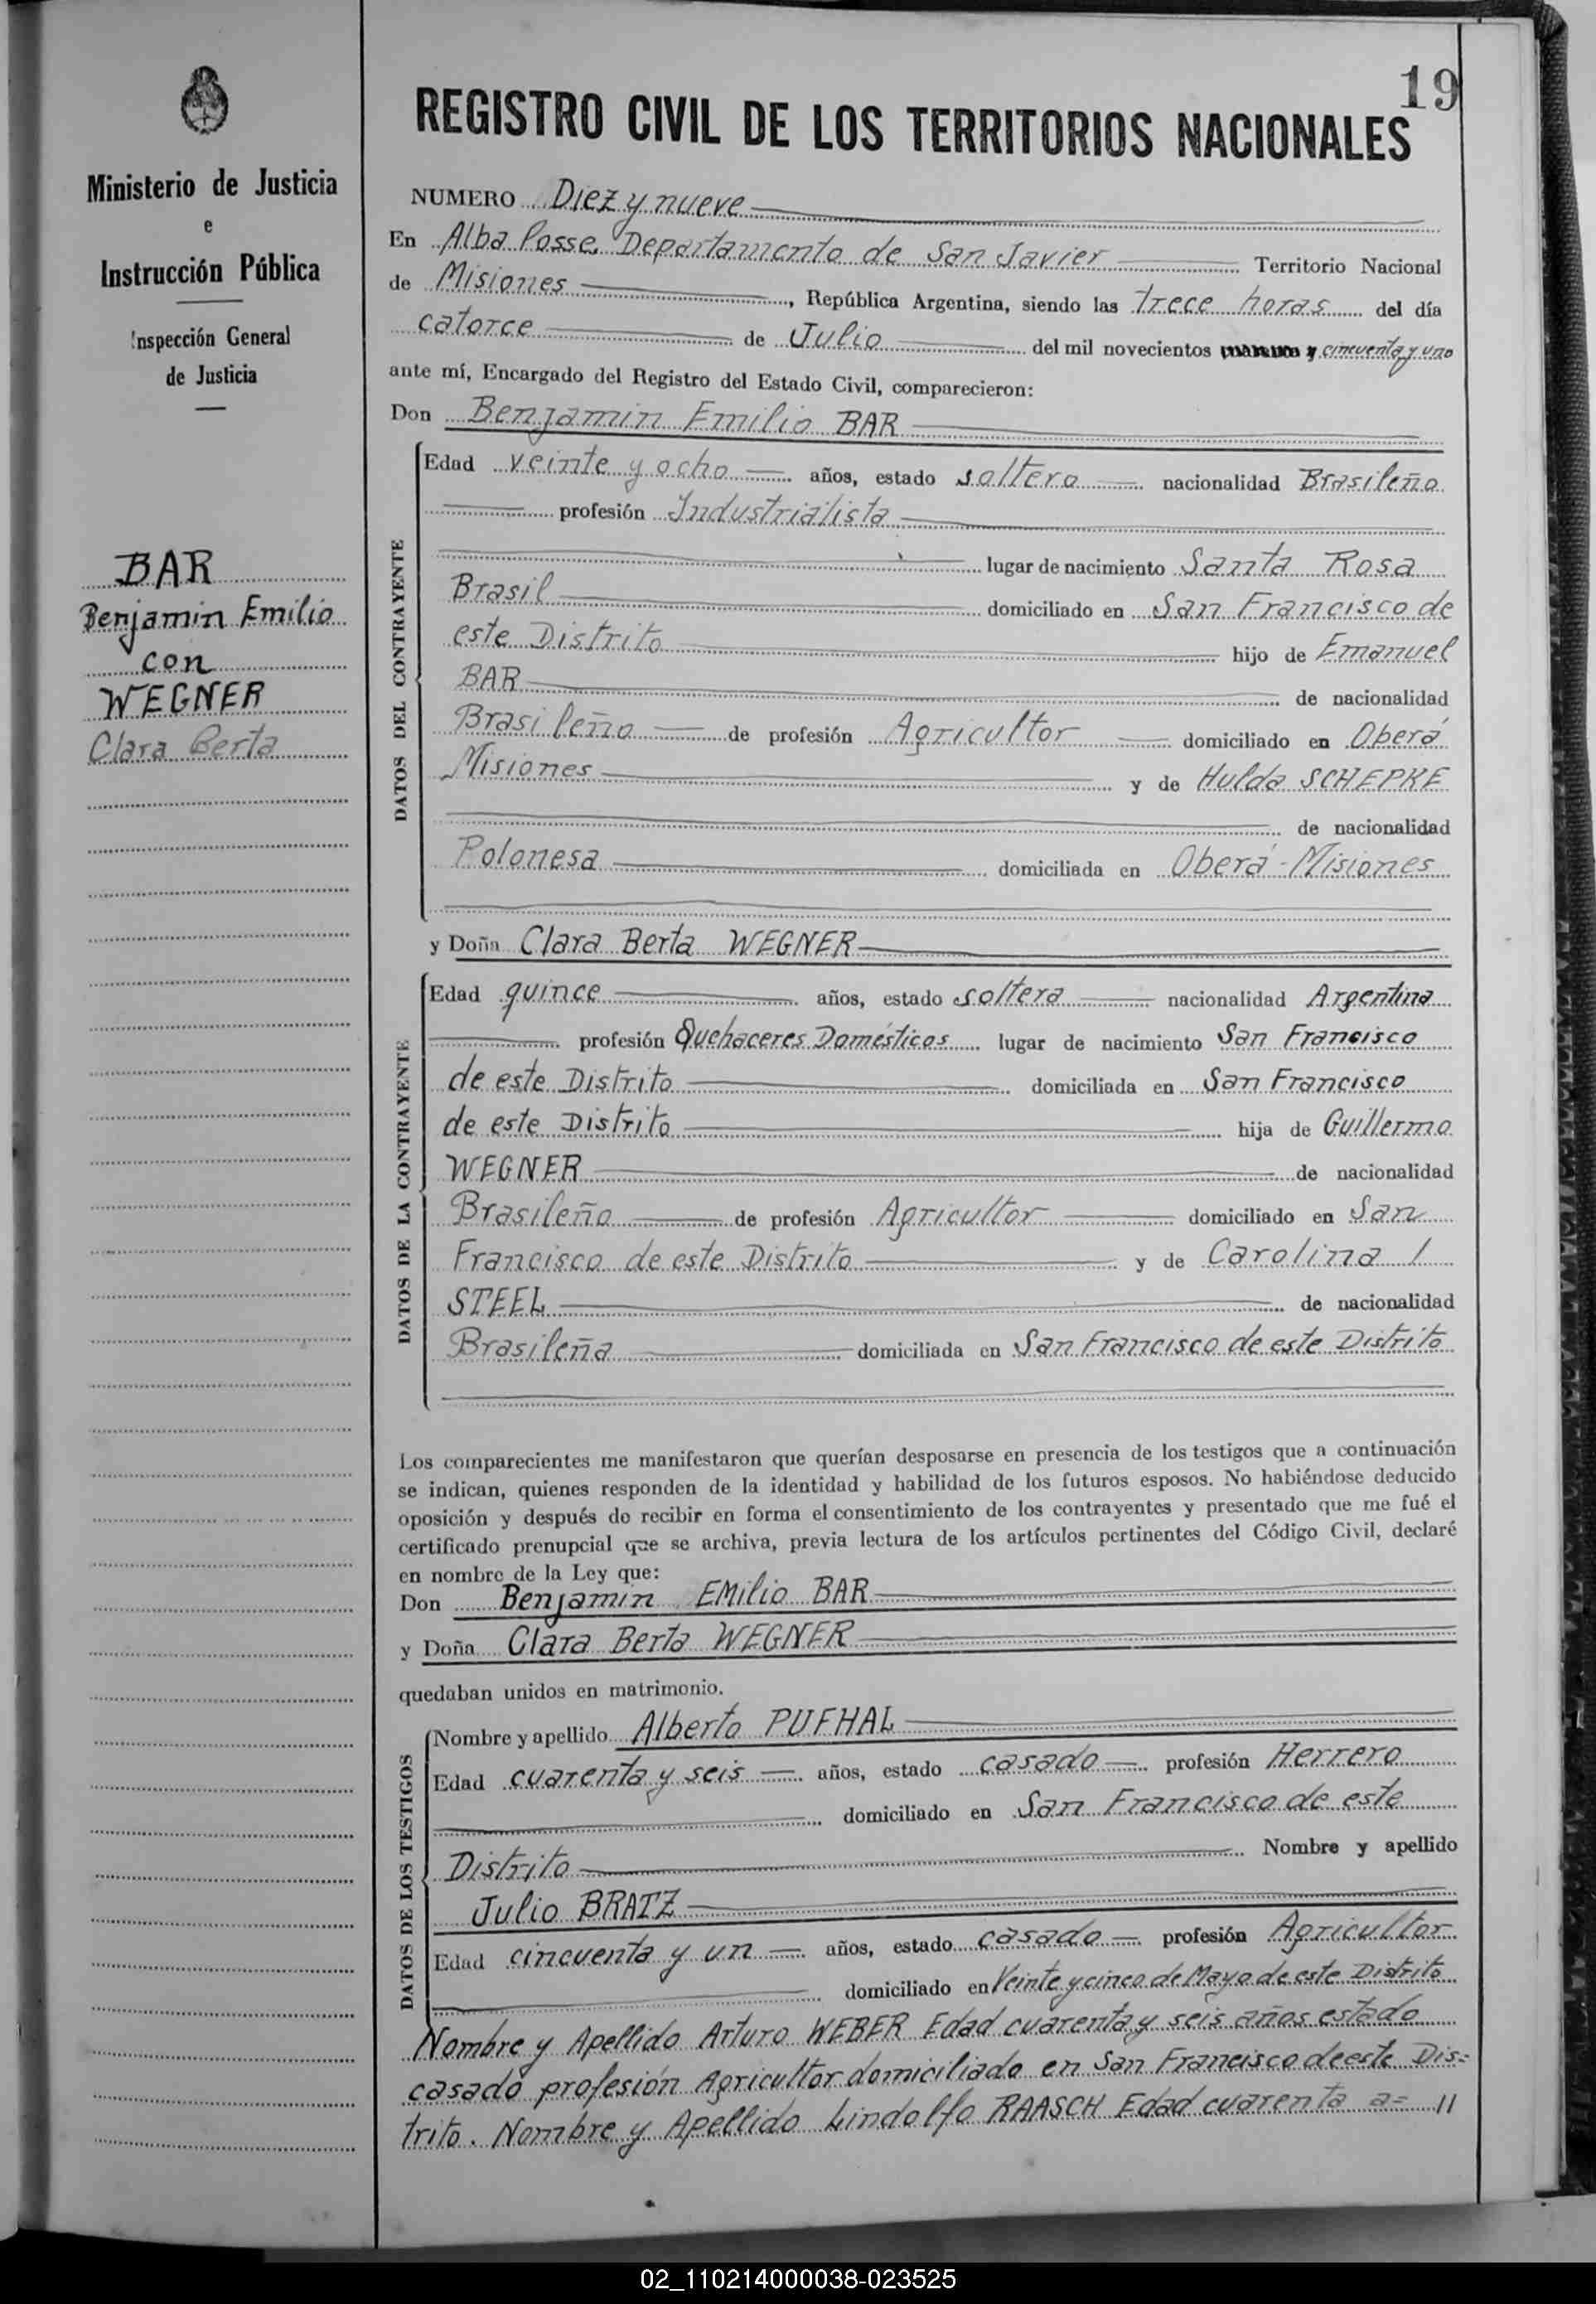 19
Ministerio de Justicia
e
Instrucción Pública
Inspección General
de Justicia
BAR
Benjamin Emilio
con
WEGNER
Clara Berta
REGISTRO CIVIL DE LOS TERRITORIOS NACIONALES
NUMERO Diez y nueve
En Alba Posse, Departamento de San Javier Territorio Nacional
de Misiones, República Argentina, siendo las trece horas del día
catorce de Julio del mil novecientos y cincuenta y uno
ante mí, Encargado del Registro del Estado Civil, comparecieron:
Don Benjamin Emilio BAR
DATOS DEL CONTRAYENTE
Edad veinte y ocho años, estado soltero nacionalidad Brasileño
profesión Industrialista
lugar de nacimiento Santa Rosa
Brasil domiciliado en San Francisco de
este Distrito hijo de Emanuel
BAR de nacionalidad
Brasileño de profesión Agricultor domiciliado en Oberá
Misiones y de Hulda SCHEPKE
de nacionalidad
Polonesa domiciliada en Oberá - Misiones
y Doña Clara Berta WEGNER
DATOS DE LA CONTRAYENTE
Edad quince años, estado soltera nacionalidad Argentina
profesión Quehaceres Domésticos lugar de nacimiento San Francisco
de este Distrito domiciliada en San Francisco
de este Distrito hija de Guillermo
WEGNER de nacionalidad
Brasileño de profesión Agricultor domiciliado en San
Francisco de este Distrito y de Carolina
STEEL de nacionalidad
Brasileña domiciliada en San Francisco de este Distrito
Los comparecientes me manifestaron que querían desposarse en presencia de los testigos que a continuación
se indican, quienes responden de la identidad y habilidad de los futuros esposos. No habiéndose deducido
oposición y después de recibir en forma el consentimiento de los contrayentes y presentado que me fué el
certificado prenupcial que se archiva, previa lectura de los artículos pertinentes del Código Civil, declaré
en nombre de la Ley que:
Don Benjamin EMilio BAR
y Doña Clara Berta WEGNER
quedaban unidos en matrimonio.
DATOS DE LOS TESTIGOS
Nombre y apellido Alberto PUFHAL
Edad cuarenta y seis años, estado casado profesión Herrero
domiciliado en San Francisco de este
Distrito Nombre y apellido
Julio BRATZ
Edad cincuenta y un años, estado casado profesión Agricultor
domiciliado en Veinte y cinco de Mayo de este Distrito
Nombre y Apellido Arturo WEBER Edad cuarenta y seis años estado
casado profesión Agricultor domiciliado en San Francisco de este Dis=
trito. Nombre y Apellido Lindolfo RAASCH Edad cuarenta a= //
02_110214000038-023525